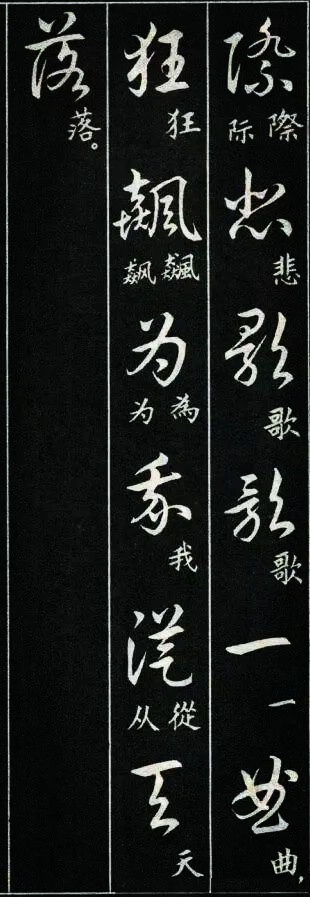 際 際 际 悲 悲 歌 歌 歌 歌 一 一 曲 曲，
狂 狂 飆 飆 飙 为 為 为 我 我 從 從 从 天 天
落 落。